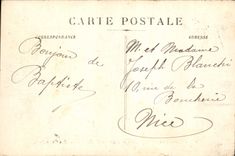 CARTE POSTALE
CORRESPONDANCE
ADRESSE
Bonjour
de
Baptiste
M. et Madame
Joseph Blanchi
10, rue de la
Boucherie
Nice